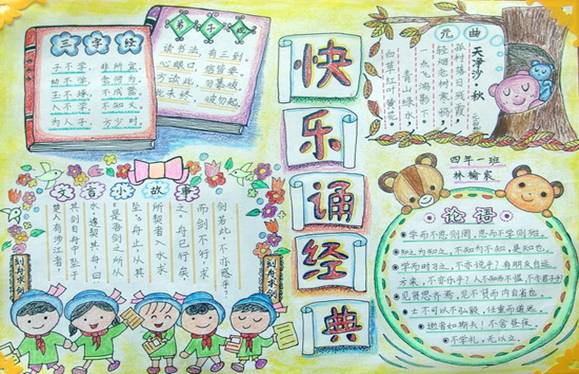 三字经
子不学,非所宜。
幼不学,老何为。
玉不琢,不成器。
人不学,不知义。
为人子,方少时。
弟子规
读书法,有三到,
心眼口,信皆要。
方读此,勿慕彼,
此未终,彼勿起。
快乐诵经典
元曲
天净沙·秋
孤村落日残霞,
轻烟老树寒鸦,
一点飞鸿影下。
青山绿水,
白草红叶黄花。
四年一班
文言小故事
刻舟求剑
楚人有涉江者,
其剑自舟中坠于
水,遽契其舟,曰
是吾剑之所从
坠。舟止,从其
所契者入水求
之。舟已行矣,
而剑不行,求
剑若此,不亦惑乎!
刻舟求剑
论语
学而不思则罔,思而不学则殆。
知之为知之,不知为不知,是知也。
学而时习之,不亦说乎?有朋自远
方来,不亦乐乎?人不知而不愠,不亦君子乎?
见贤思齐焉,见不贤而内自省也。
士不可以不弘毅,任重而道远。
逝者如斯夫!不舍昼夜。
不学礼,无以立。